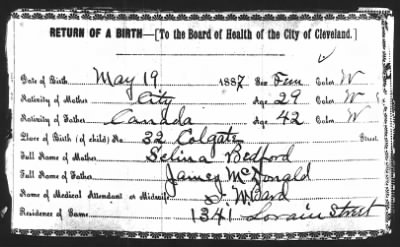 RETURN OF A BIRTH—[To the Board of Health of the City of Cleveland.]
Date of Birth, May 19 1887 Sex Fem Color W
Nativity of Mother City Age 29 Color W
Nativity of Father Canada Age 42 Color W
Place of Birth (of child) No 32 Colgate Street
Full Name of Mother Selina Bedford
Full Name of Father James McDonald
Name of Medical Attendant or Midwife
Residence of Same 1341 Lorain Street